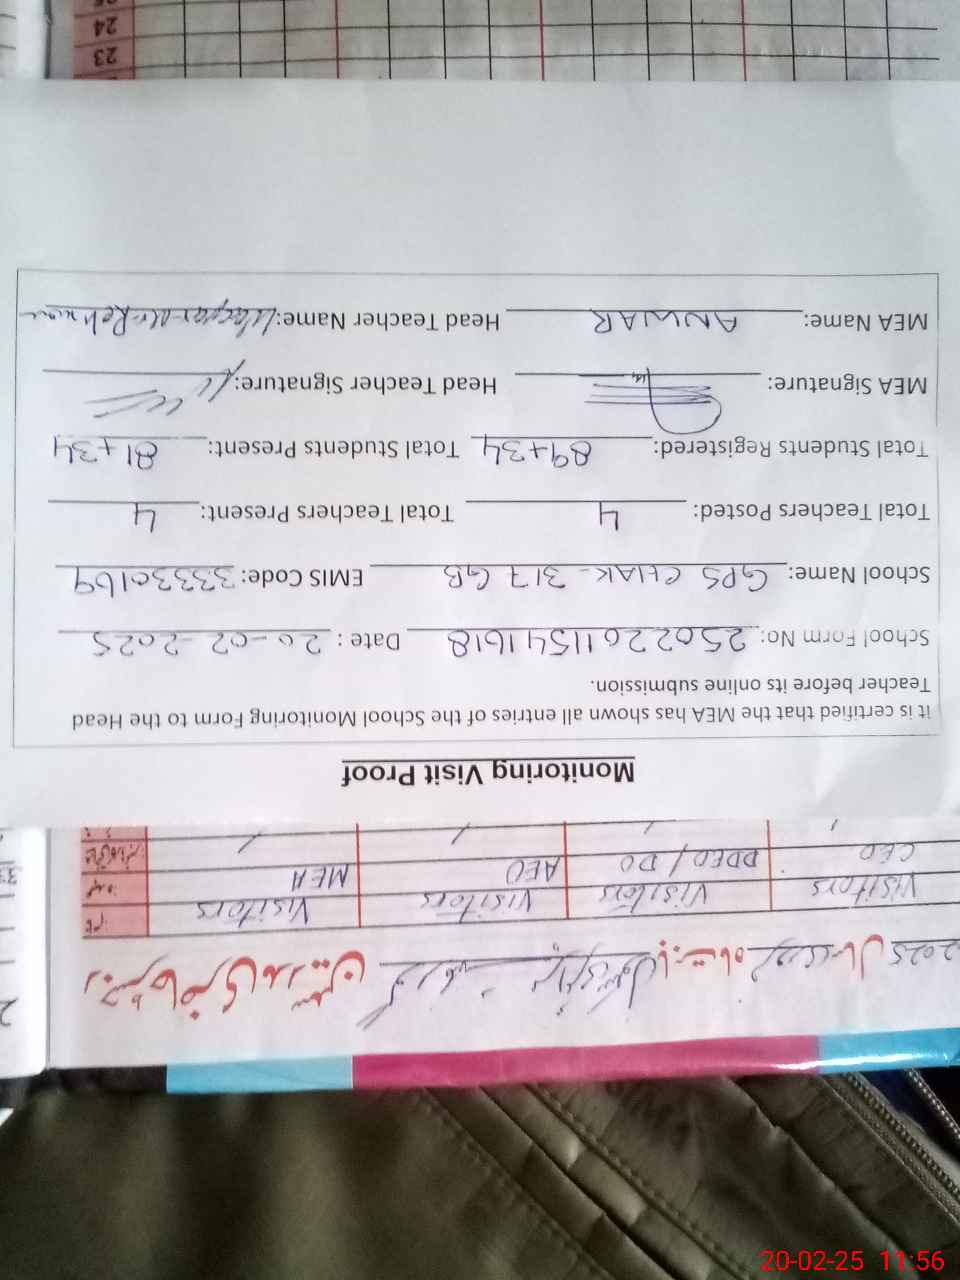 2025 سال بابت ماہ رجسٹر حاضری مدرسین
VISITORS VISITORS VISITORS VISITORS
MEA AEO DDEO / DO CEO
Monitoring Visit Proof
It is certified that the MEA has shown all entries of the School Monitoring Form to the Head
Teacher before its online submission.
School Form No: 250220115541618 Date : 20-02-2025
School Name: GPS CHAK-317 GB EMIS Code: 33330169
Total Teachers Posted: 4 Total Teachers Present: 4
Total Students Registered: 89+34 Total Students Present: 81+34
MEA Signature: Head Teacher Signature:
MEA Name: ANWAR Head Teacher Name: Rehman
23
24
20-02-25 11:56